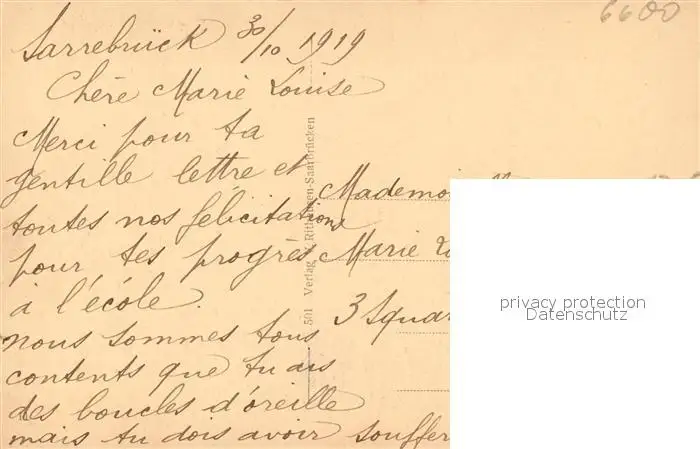 6600
Sarrebrück 30/10 1919
Chère Marie Louise
Merci pour ta
gentille lettre et
toutes nos félicitations
pour tes progrès
à l'école.
nous sommes tous
contents que tu ais
des boucles d'oreille
mais tu dois avoir souffer
501 Verlag
Saarbrücken
Mademoi
Marie Lo
3 Squar
privacy protection
Datenschutz